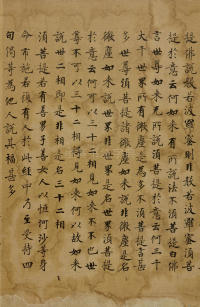 提佛說般若波羅蜜則非般若波羅蜜須菩
提於意云何如來有所說法不須菩提白佛
言世尊如來無所說須菩提於意云何三千
大千世界所有微塵是為多不須菩提言甚
多世尊須菩提諸微塵如來說非微塵是名
微塵如來說世界非世界是名世界須菩提
於意云何可以三十二相見如來不不也世
尊不可以三十二相得見如來何以故如來
說卅二相即是非相是名三十二相
須菩提若有善男子善女人以恒河沙等身
命布施若復有人於此經中乃至受持四
句偈等為他人說其福甚多